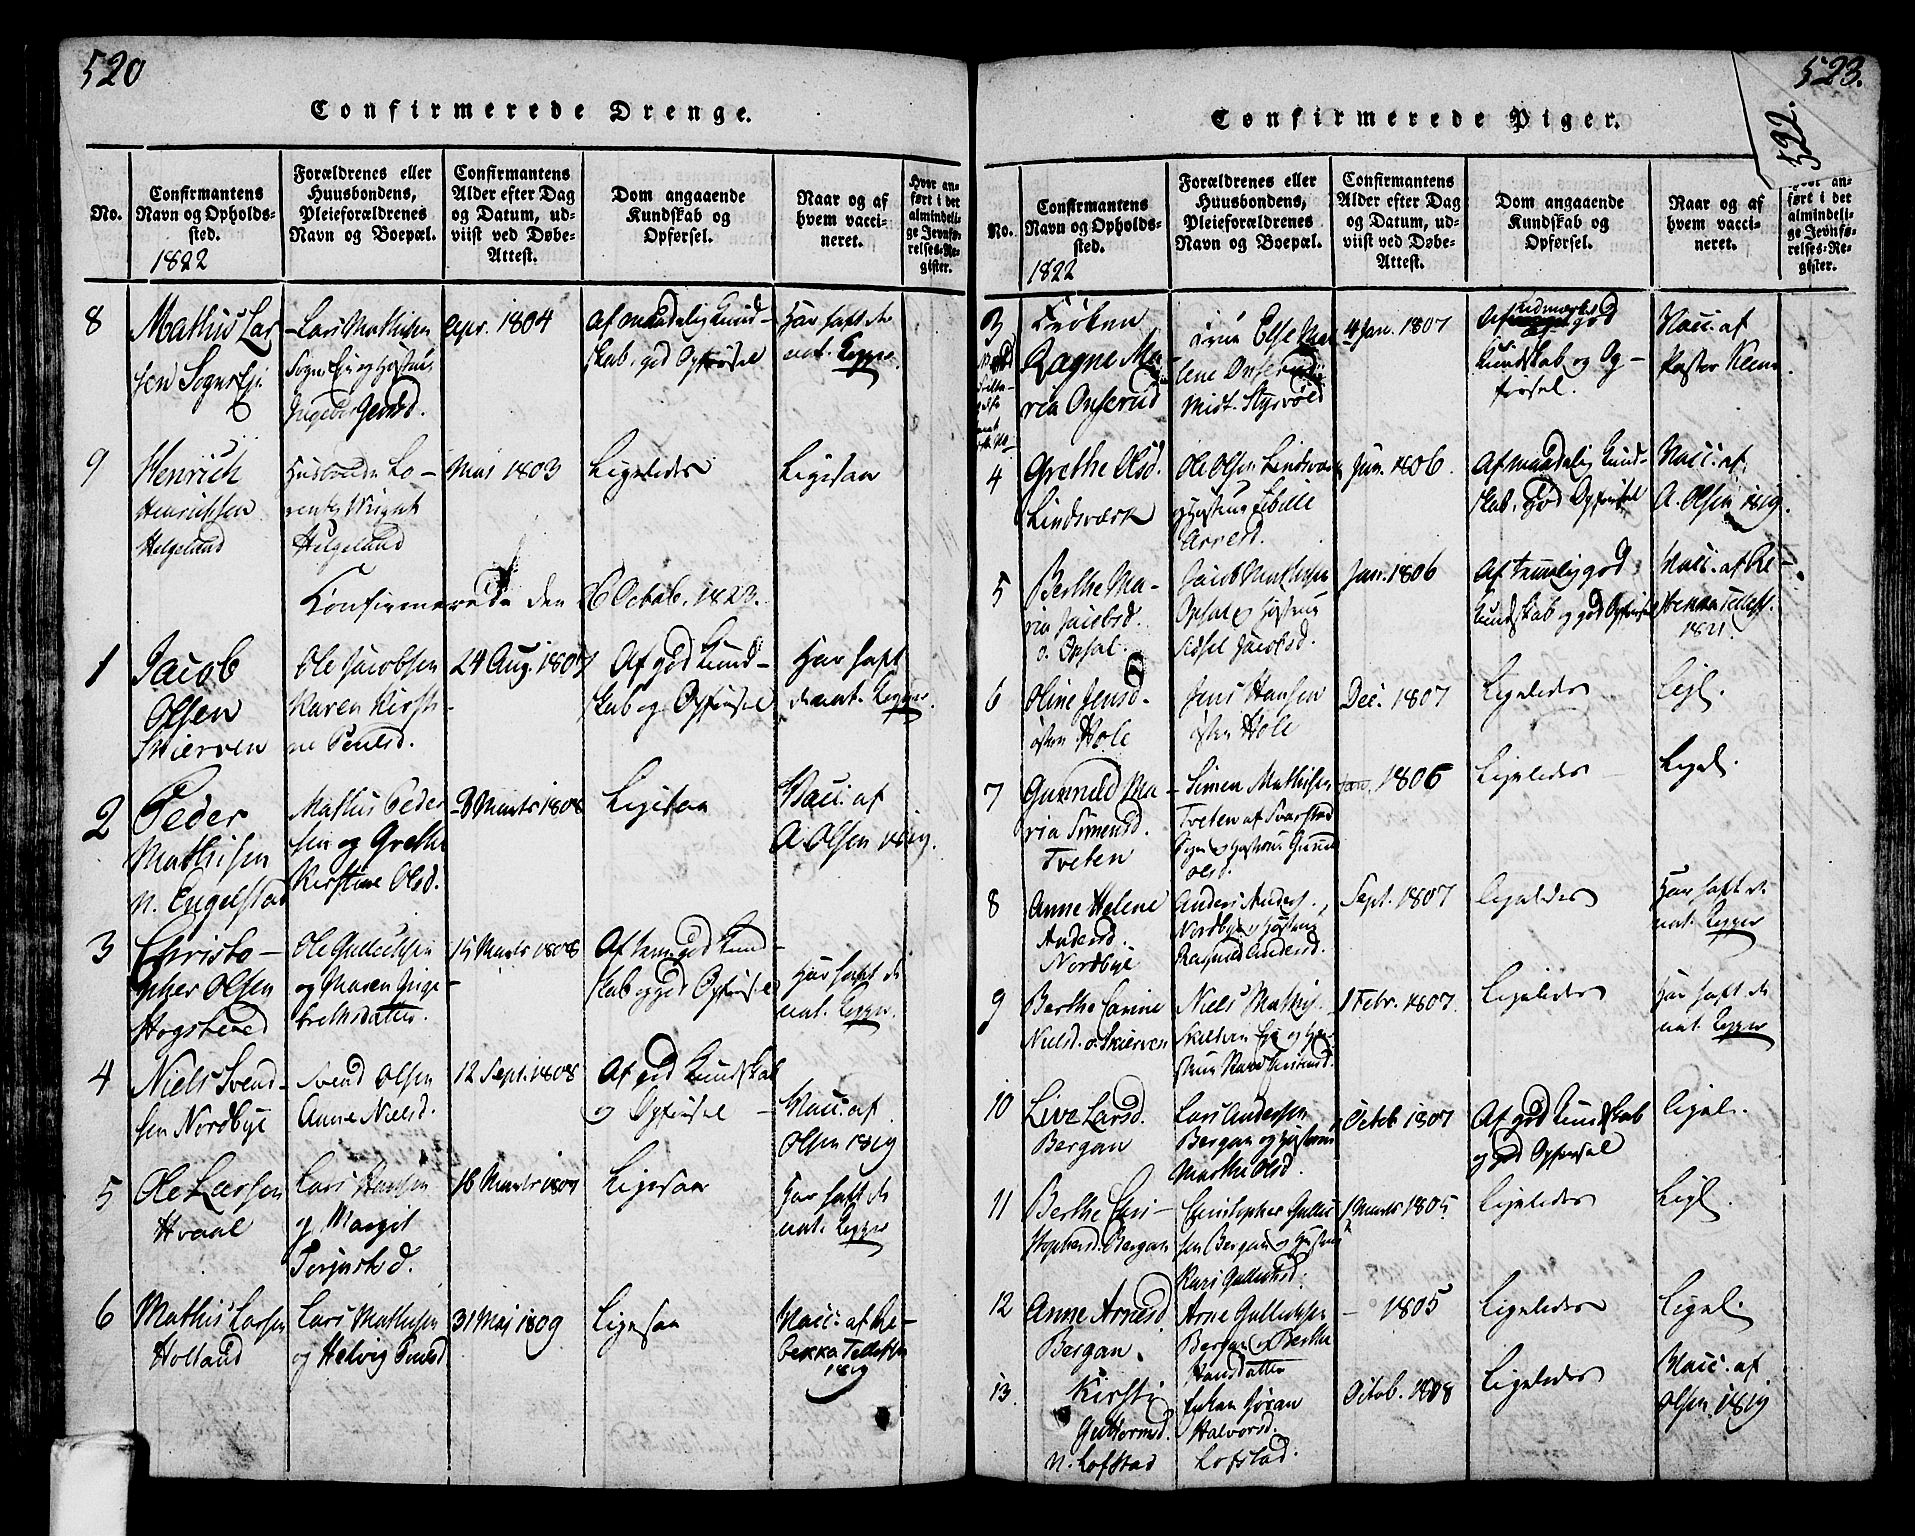 520
Confirmerede Drenge.
No.
Confirmantens
Navn og Opholds-
sted.
1822
Forældrenes eller
Huusbondens,
Pleieforældrenes
Navn og Boepæl.
Confirmantens
Alder efter Dag
og Datum, ud-
viist ved Døbe-
Attest.
Dom angaaende
Kundskab og
Opførsel.
Naar og af
hvem vacci-
neret.
Hvor an-
ført i det
almindeli-
ge Jevnfø-
relses-Re-
gister.
8
Mathis Lar-
sen Sogns Eje
Lars Mathisen
Sogns Eje og Hustru
Ingebor
apr. 1804
Af maadelig Kund-
skab, god Opførsel
Har haft de
nat. Kopper
9
Henrich
Henrichsen
Helgeland
Huusbonde Lo-
rentz Wright
Helgeland
Mai 1803
Ligeledes
Ligesaa
Confirmerede den 26 Octob. 1823.
1
Jacob
Olsen
Skierven
Ole Jacobsen
Karen Kirsti-
ne Poulsd.
24 Aug. 1807
Af god Kund-
skab og Opførsel
Har haft
de nat. Kopper
2
Peder
Mathisen
n. Engelstad
Mathis Peder
sen og Grethe
Kirstine Olsd.
3 Marts 1808
Ligesaa
Vacc. af
A. Olsen 1819.
3
Christo-
pher Olsen
Hogstved
Ole Gullichsen
og Maren Inge-
brethsdatter.
15 Marts 1808
Af tem. god Kund-
skab og god Opførsel
Har haft de
nat. Kopper.
4
Niels Svend-
sen Nordbye
Svend Olsen
Anne Nielsd.
12 Sept. 1808
Af god Kundskab
og Opførsel
Vacc. af
Olsen 1819
5
Ole Larsen
Hvaal
Lars Hansen
og Margit
Terjested.
16 Marts 1807
Ligesaa
Har haft de
nat. Kopper
6
Mathis Larsen
Holtand
Lars Mathisen
og Helvig Poulsd
31 Maj 1809
Ligesaa
Vacc. af Re-
bekka Tellefsen
1819
523.
522.
Confirmerede Piger.
No.
Confirmantens
Navn og Opholds-
sted.
1822
Forældrenes eller
Huusbondens,
Pleieforældrenes
Navn og Boepæl.
Confirmantens
Alder efter Dag
og Datum, ud-
viist ved Døbe-
Attest.
Dom angaaende
Kundskab og
Opførsel.
Naar og af
hvem vacci-
neret.
Hvor an-
ført i det
almindeli-
ge Jevnfø-
relses-Re-
gister.
3
Frøken
Ragne Ma-
ria Onserud
Frue Else Ma-
lene Onserud
Midt. Styrvold
4 Jan. 1807
Af udmerket god
Kundskab og Op-
førsel.
Vacc. af
Pastor Klem
4
Grethe Olsd.
Lindsværk
Ole Olsen Lindsværk
og Hustru Sibille
Arnesd.
Jun. 1806.
Af maadelig Kund-
skab, god Opførsel
Vacc. af
A. Olsen 1819.
5
Berthe Ma-
ria Jacobsd.
o. Opsal.
Jacob Mathisen
Opsal og Hustrue
Sidsel Jacobsd.
Jan. 1806
Af temmelig god
Kundskab og god Opførsel
Vacc. af Re-
bekka Tellefs.
1821.
6
Oline Jensd.
østre Hole
Jens Hansen
østre Hole
Dec. 1807
Ligeledes
Ligel.
7
Gunnild Ma-
ria Simensd.
Tveten
Simen Mathisen
Tveten af Svarstad
Sogn og Hustrue Gunnil
Olsd.
Jan. 1806
Ligeledes
Ligel.
8
Anne Helene
Andersd.
Nordbye
Anders Anders.
Nordbye og Hustrue
Ragnild Andersd.
Sept. 1807
Ligeledes
Har haft de
nat. Kopper
9
Berthe Carine
Nielsd. o. Skierven
Niels Mathis.
Skierven Eje og Hu-
strue
1 Febr. 1807.
Ligeledes
Har haft de
nat. Kopper
10
Live Larsd.
Bergan
Lars Andersen
Bergan og Hustrue
Marthe Olsd.
Octob 1807
Af god Kundskab
og god Opførsel
Ligel.
11
Berthe Chri-
stophersd. Bergan
Christopher Gullik
sen Bergan og Hustrue
Kari Gulliksd.
1 Marts 1805
Ligeledes
Ligl.
12
Anne Arnesd
Bergan
Arne Gullichsen
Bergan og Berthe
Hansdatter
— 1805
Ligeledes
Ligel.
13.
Kirsti
Guttormsd.
n. Lofstad
Enken Jøran
Halvorsd.
Lofstad.
Octob. 1808
Ligeledes
Vacc. af
Olsen 1819